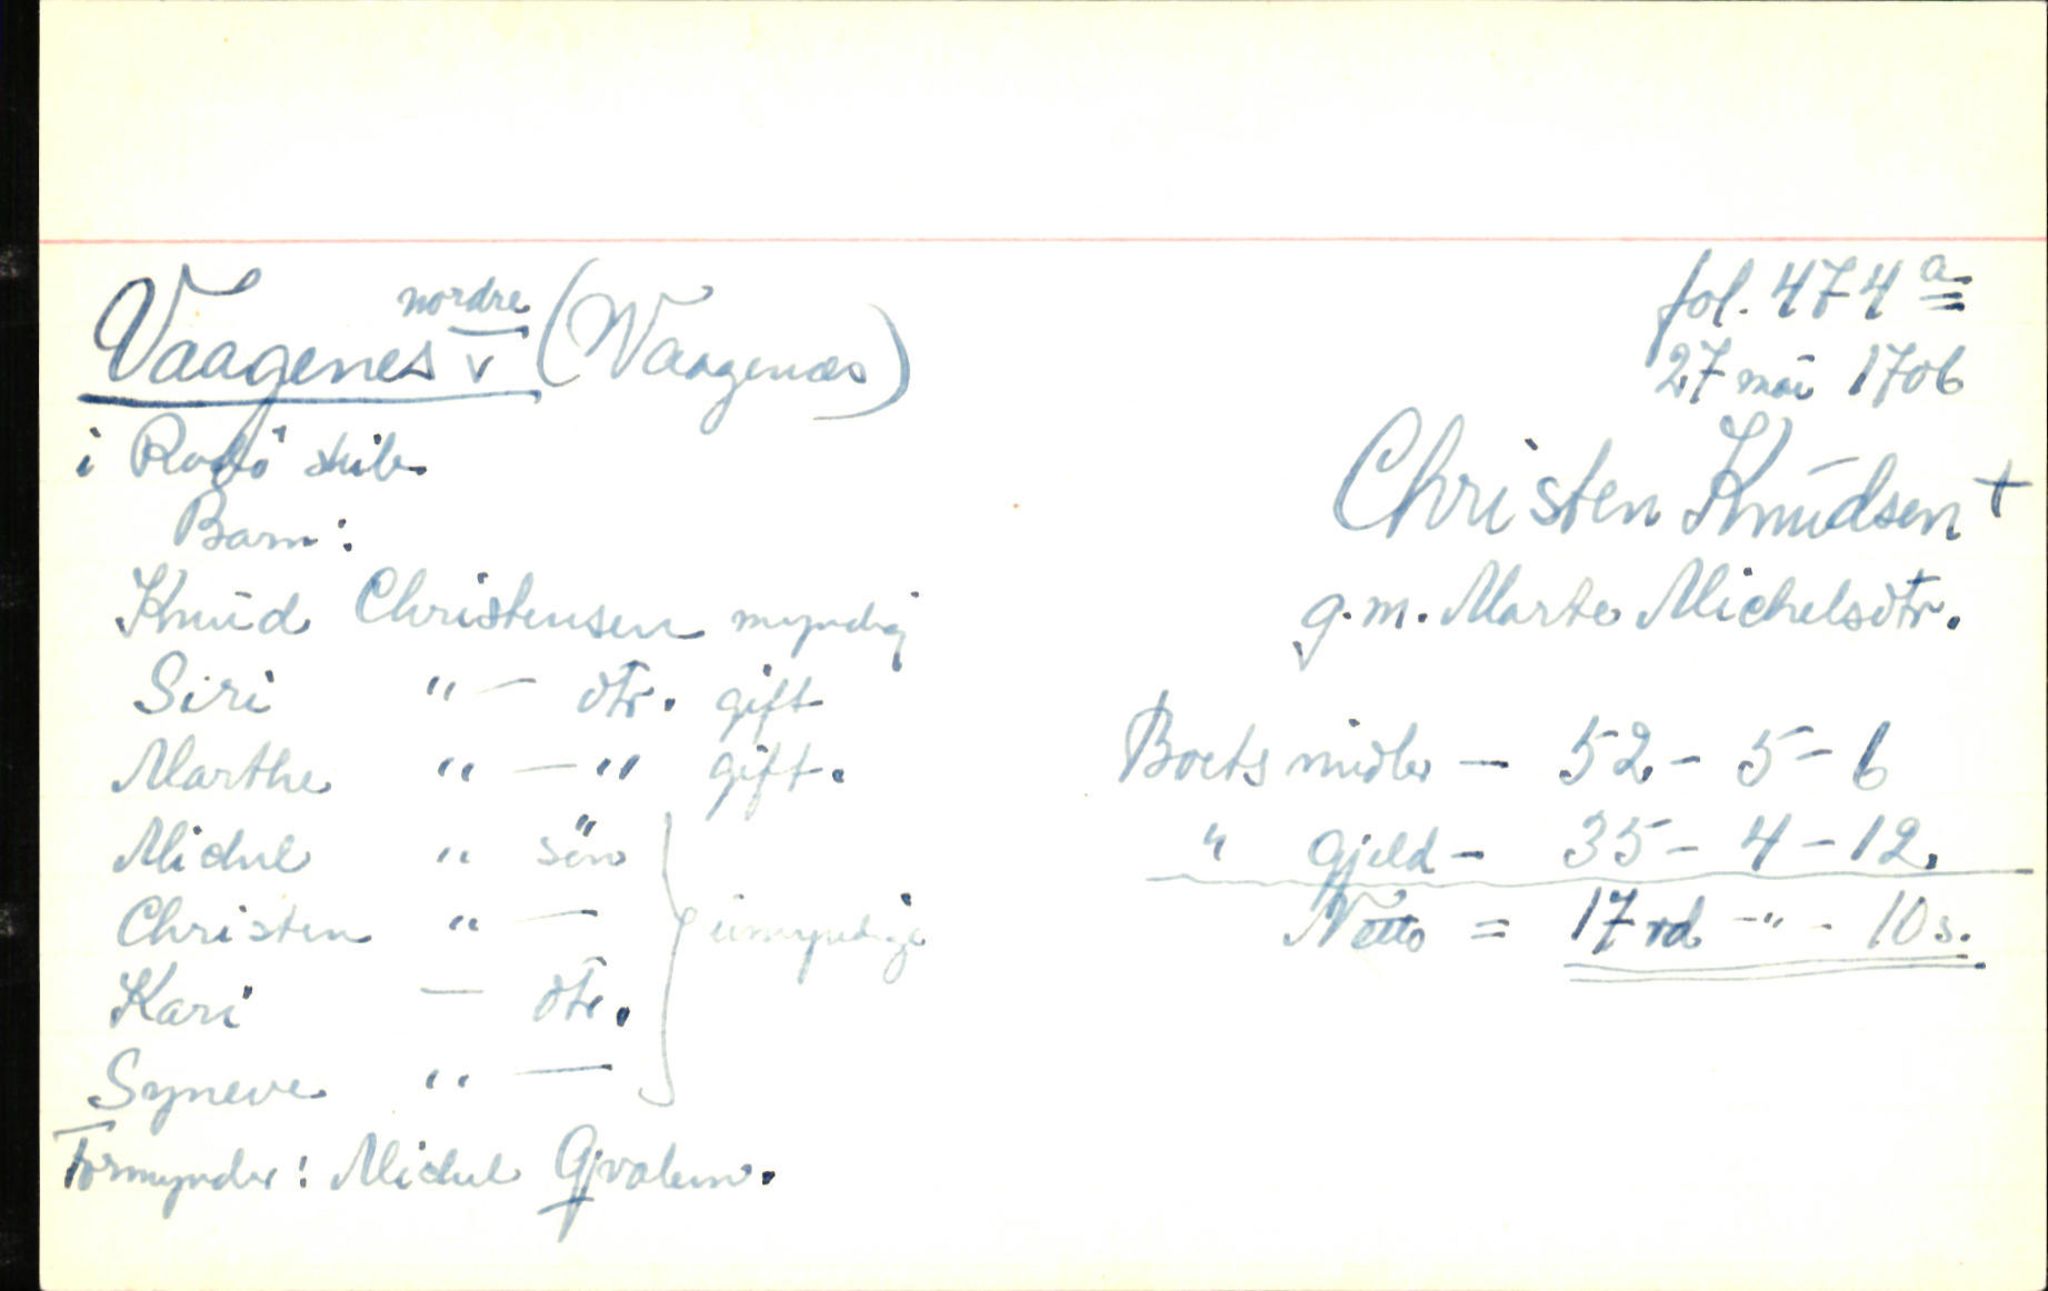 Vaagenes nordre (Waagenæs)
i Rodö skibr.
Barn:
Knud Christensen myndig
Siri " — dtr. gift
Marthe " — " gift.
Michel " sön
Christen " —
Kari — dtr.
Syneve " —
umyndige
Formynder: Michel Gjvolem.
fol. 474 a
27 mai 1706
Christen Knudsen +
g.m. Marte Michelsdtr.
Boets midler — 52 - 5 - 6
" Gjeld - 35 - 4 - 12.
Netto = 17 rd - " - 10 s.